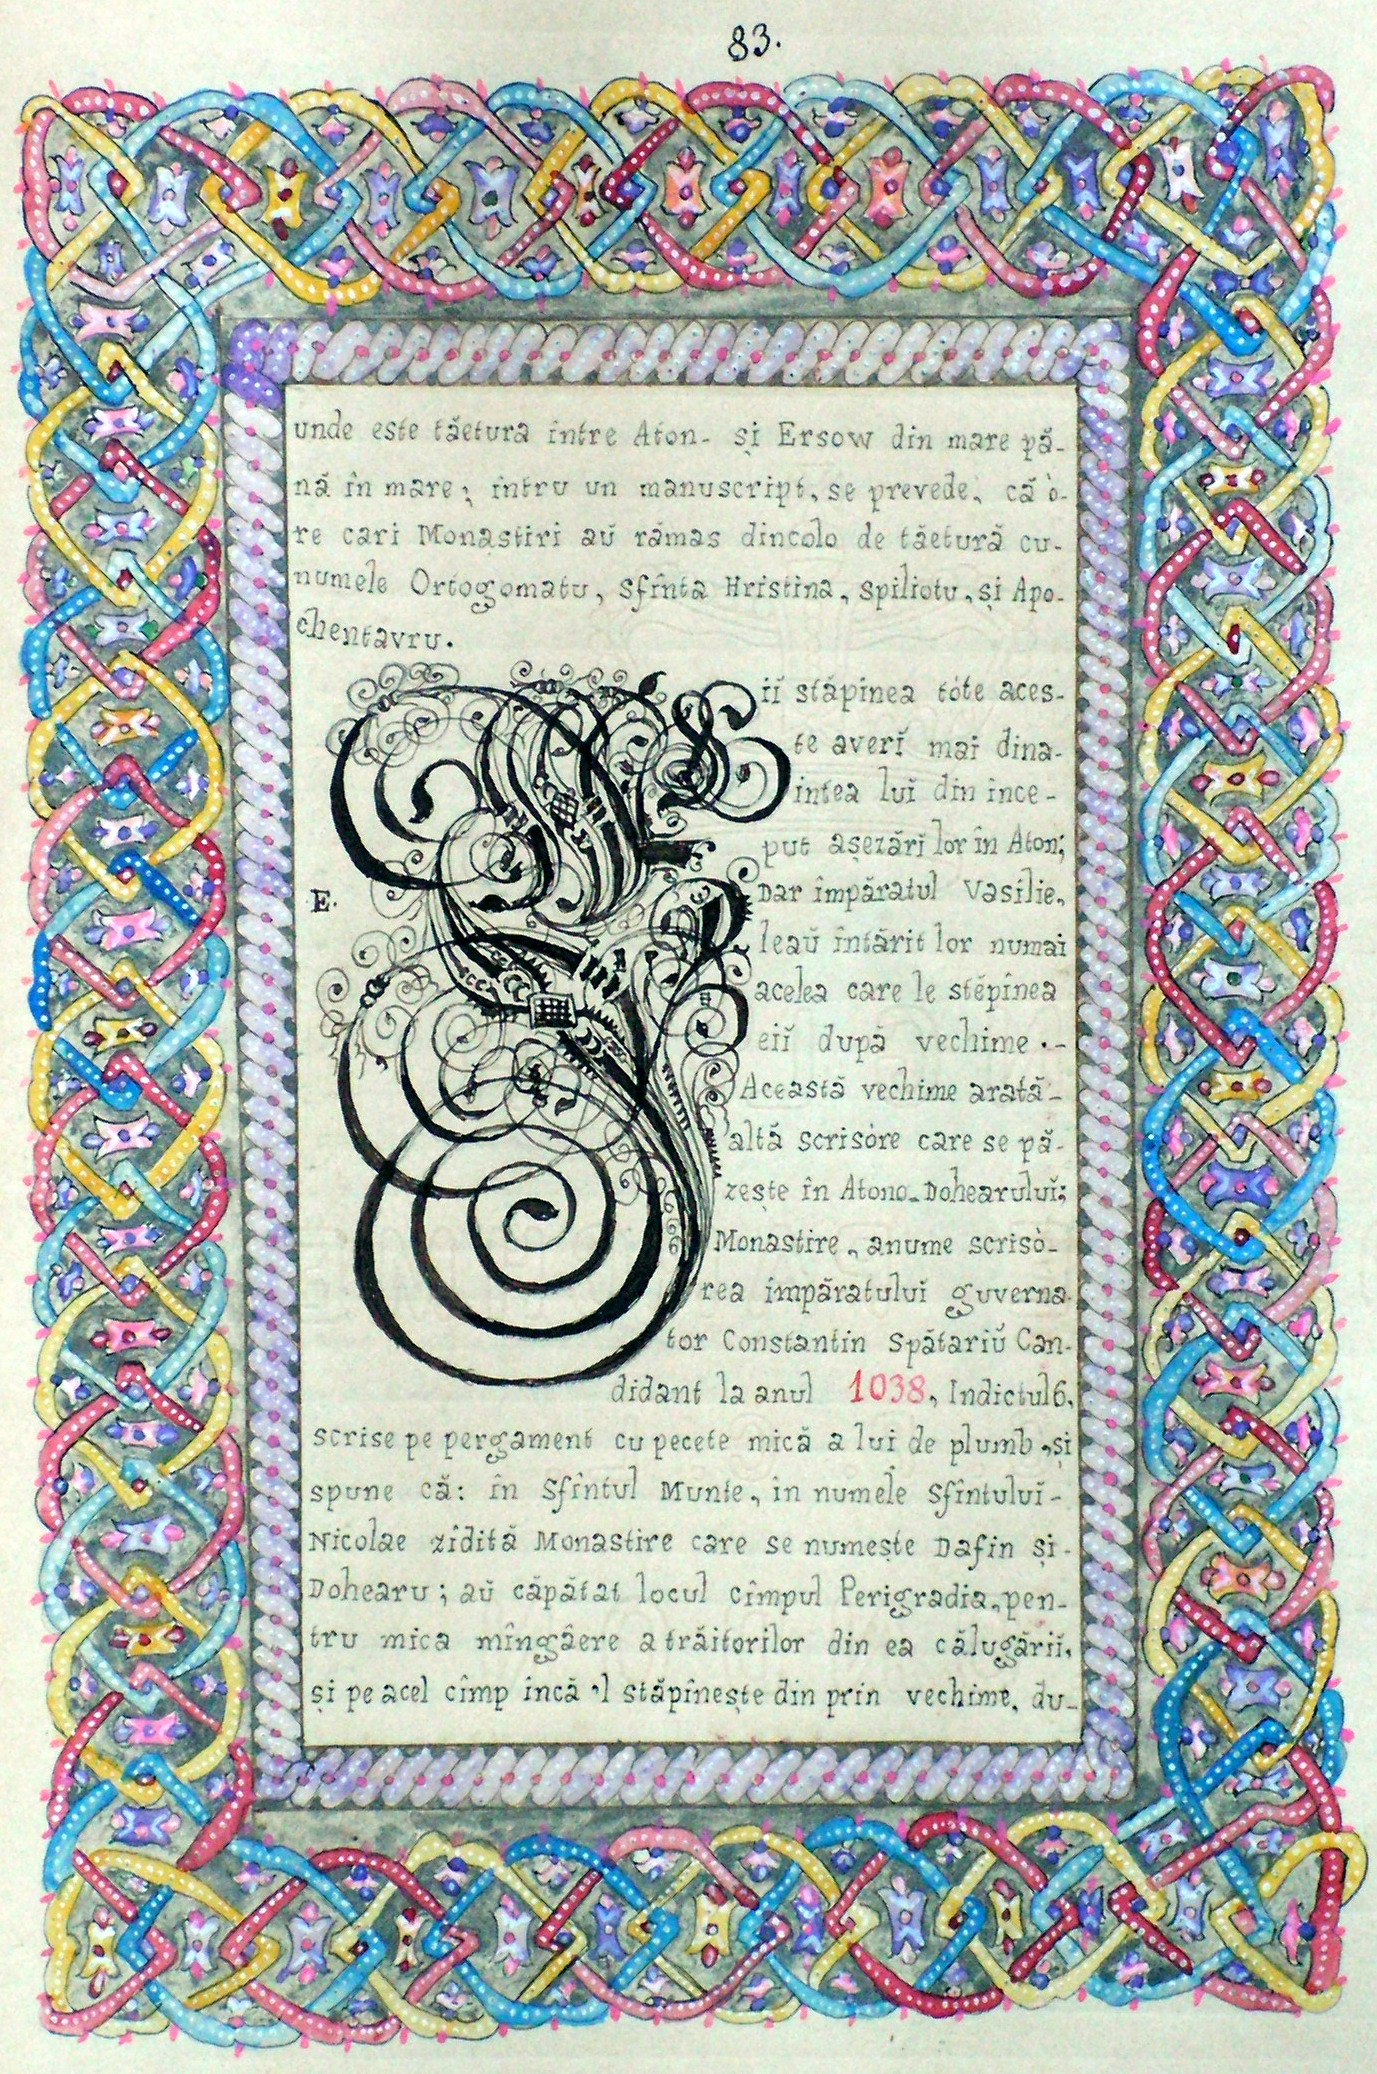 83.
unde este tăetura între Aton- și Ersow din mare pă-
nă în mare; intru un manuscript, se prevede, că ò-
re cari Monastiri aŭ rămas dincolo de tăetură cu-
numele Ortogomatu, Sfînta Hristina, Spiliotu, și Apo-
chentavru.
E.
iĭ stăpinea tòte aces-
te averĭ mai dina-
intea luĭ din ince-
put așezări lor în Aton;
Dar împăratul Vasilie,
leaŭ întărit lor numai
acelea care le stĕpînea
eiĭ după vechime.-
Această vechime arată-
altă scrisòre care se pă-
zește în Atono-Dohearuluĭ;
Monastire, anume scrisò-
rea împăratuluĭ guverna-
tor Constantin Spătariŭ Can-
didant la anul 1038, Indictul 6,
scrise pe pergament cu pecete mică a lui de plumb, și
spune că: în Sfîntul Munte, in numele Sfîntuluĭ-
Nicolae zidită Monastire care se numește Dafin și-
Dohearu; aŭ căpătat locul cîmpul Perigradia, pen-
tru mica mîngâere a trăitorilor din ea călugăriĭ,
și pe acel cîmp încă 'l stăpînește din prin vechime, du-